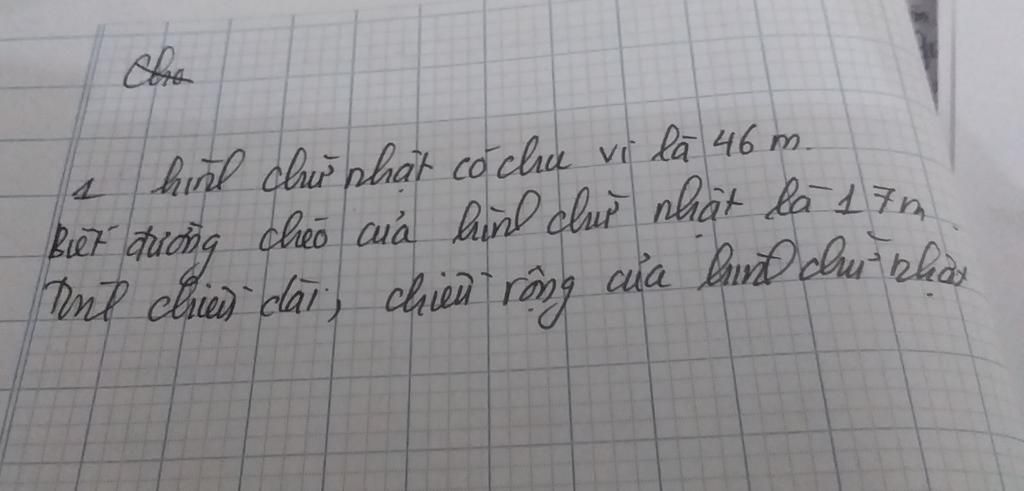 1 hình chữ nhật có chu vi là 46 m.
Biết đường chéo của hình chữ nhật là 17m.
Tính chiều dài, chiều rộng của hình chữ nhật